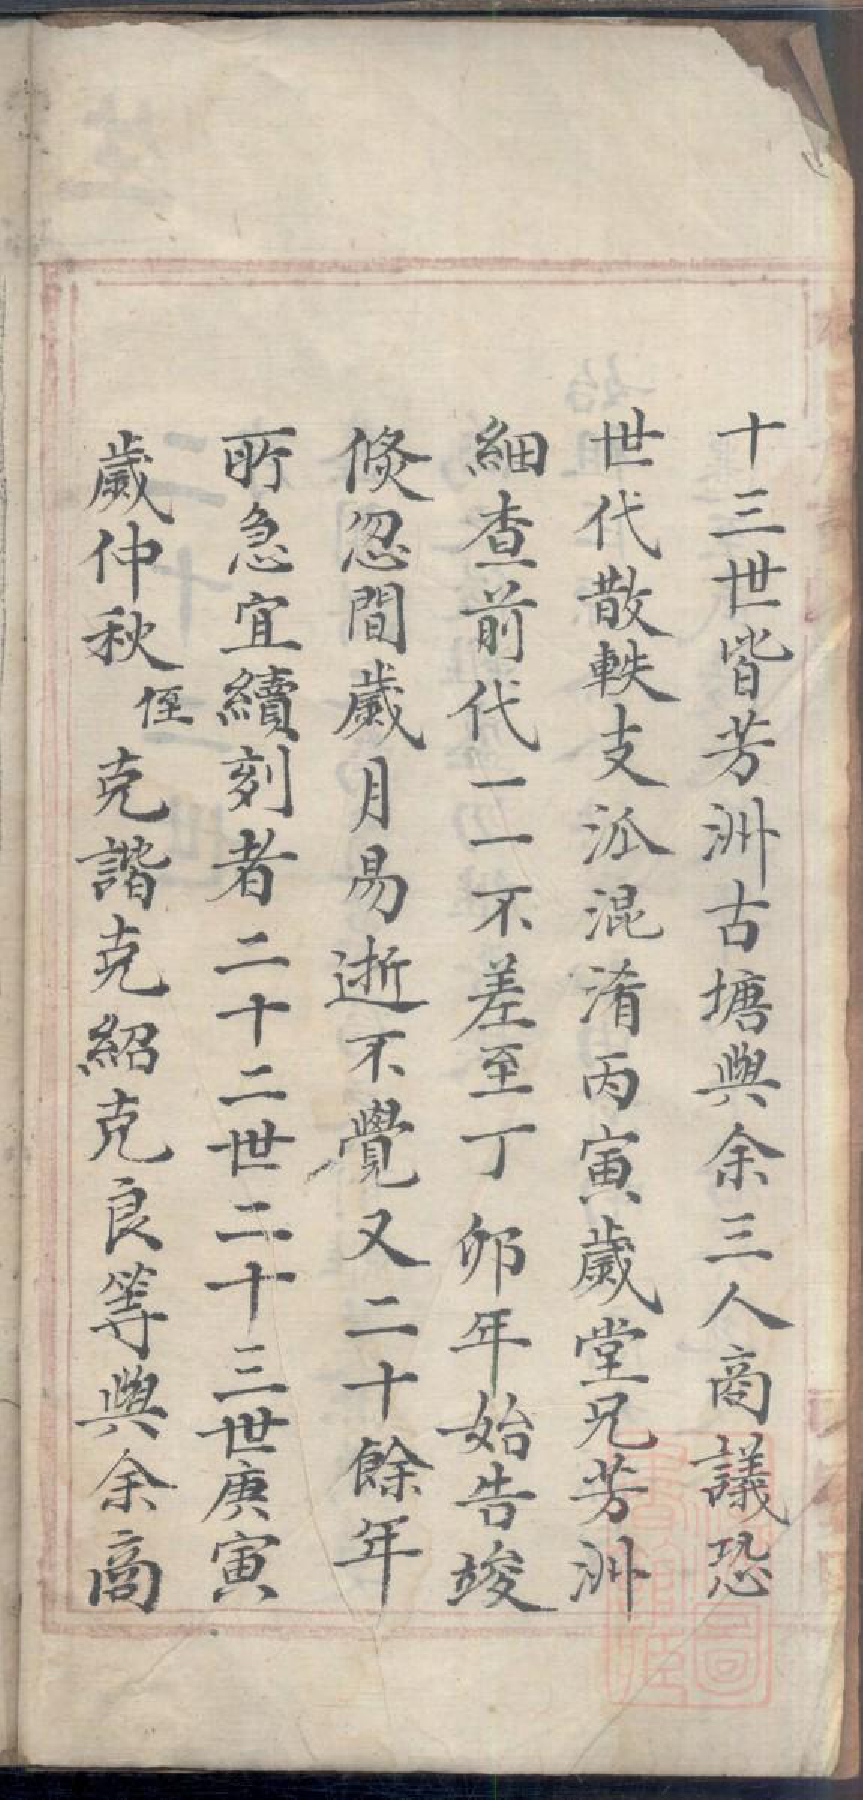 十三世皆芳洲古塘與余三人商議恐
世代散軼支派混淆丙寅歲堂兄芳洲
細查前代一一不差至丁卯年始告竣
倐忽間歲月易逝不覺又二十餘年
所急宜續刻者二十二世二十三世庚寅
歲仲秋侄克諧克紹克良等與余商